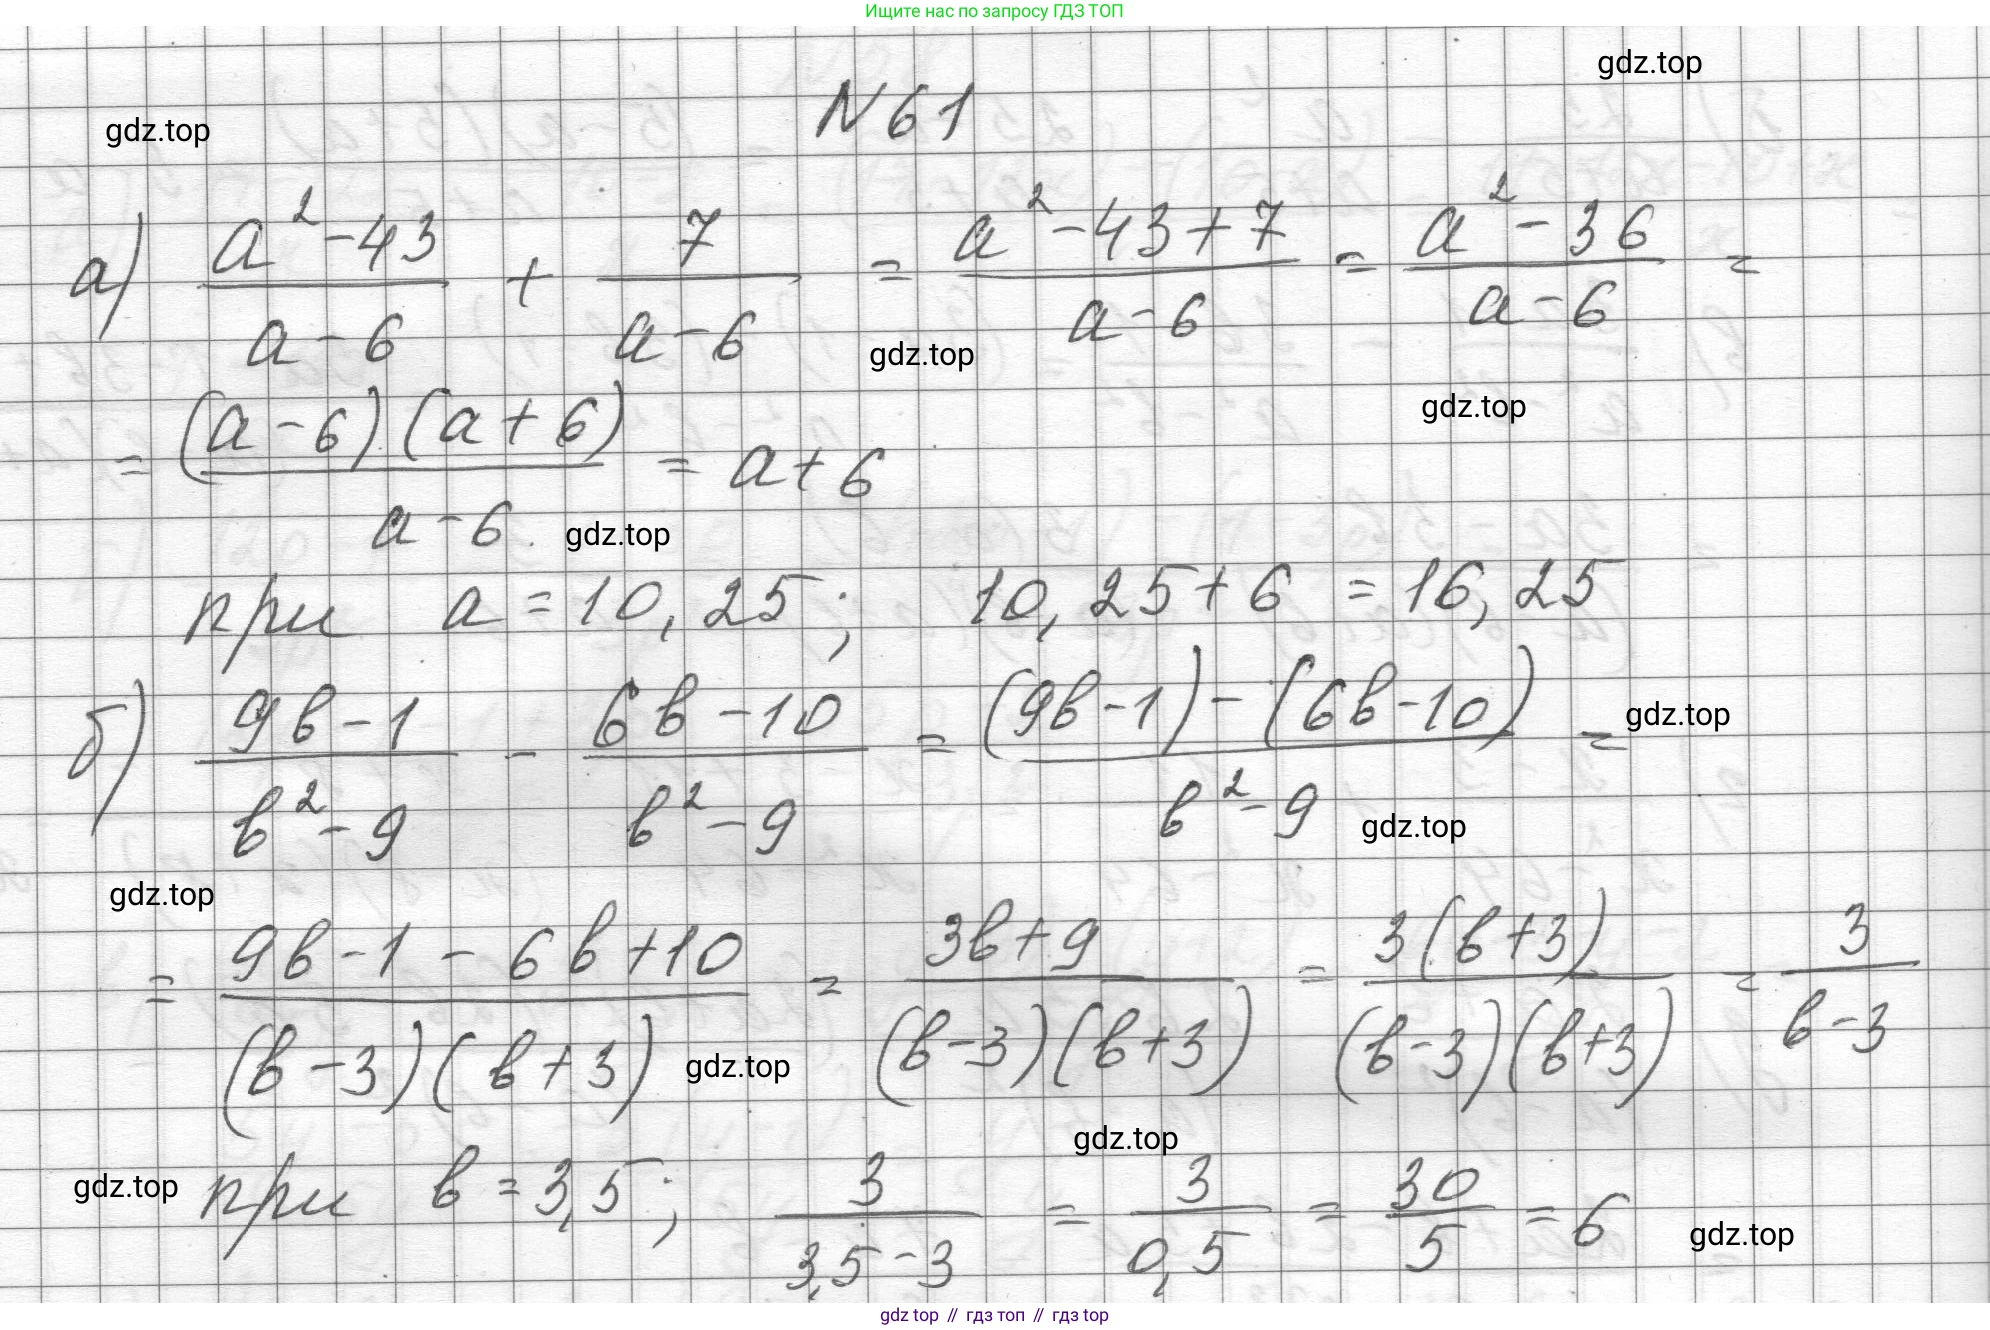 Ищите нас по запросу ГДЗ ТОП
gdz.top
N 61
gdz.top
а) (a² - 43)/(a - 6) + 7/(a - 6) = (a² - 43 + 7)/(a - 6) = (a² - 36)/(a - 6) =
gdz.top
gdz.top
= ((a - 6)(a + 6))/(a - 6) = a + 6
gdz.top
при a = 10,25; 10,25 + 6 = 16,25
б) (9b - 1)/(b² - 9) - (6b - 10)/(b² - 9) = ((9b - 1) - (6b - 10))/(b² - 9) =
gdz.top
gdz.top
gdz.top
= (9b - 1 - 6b + 10)/((b - 3)(b + 3)) = (3b + 9)/((b - 3)(b + 3)) = (3(b + 3))/((b - 3)(b + 3)) = 3/(b - 3)
gdz.top
gdz.top
gdz.top
при b = 3,5; 3/(3,5 - 3) = 3/(0,5) = 30/5 = 6
gdz.top
gdz top // гдз топ // гдз top